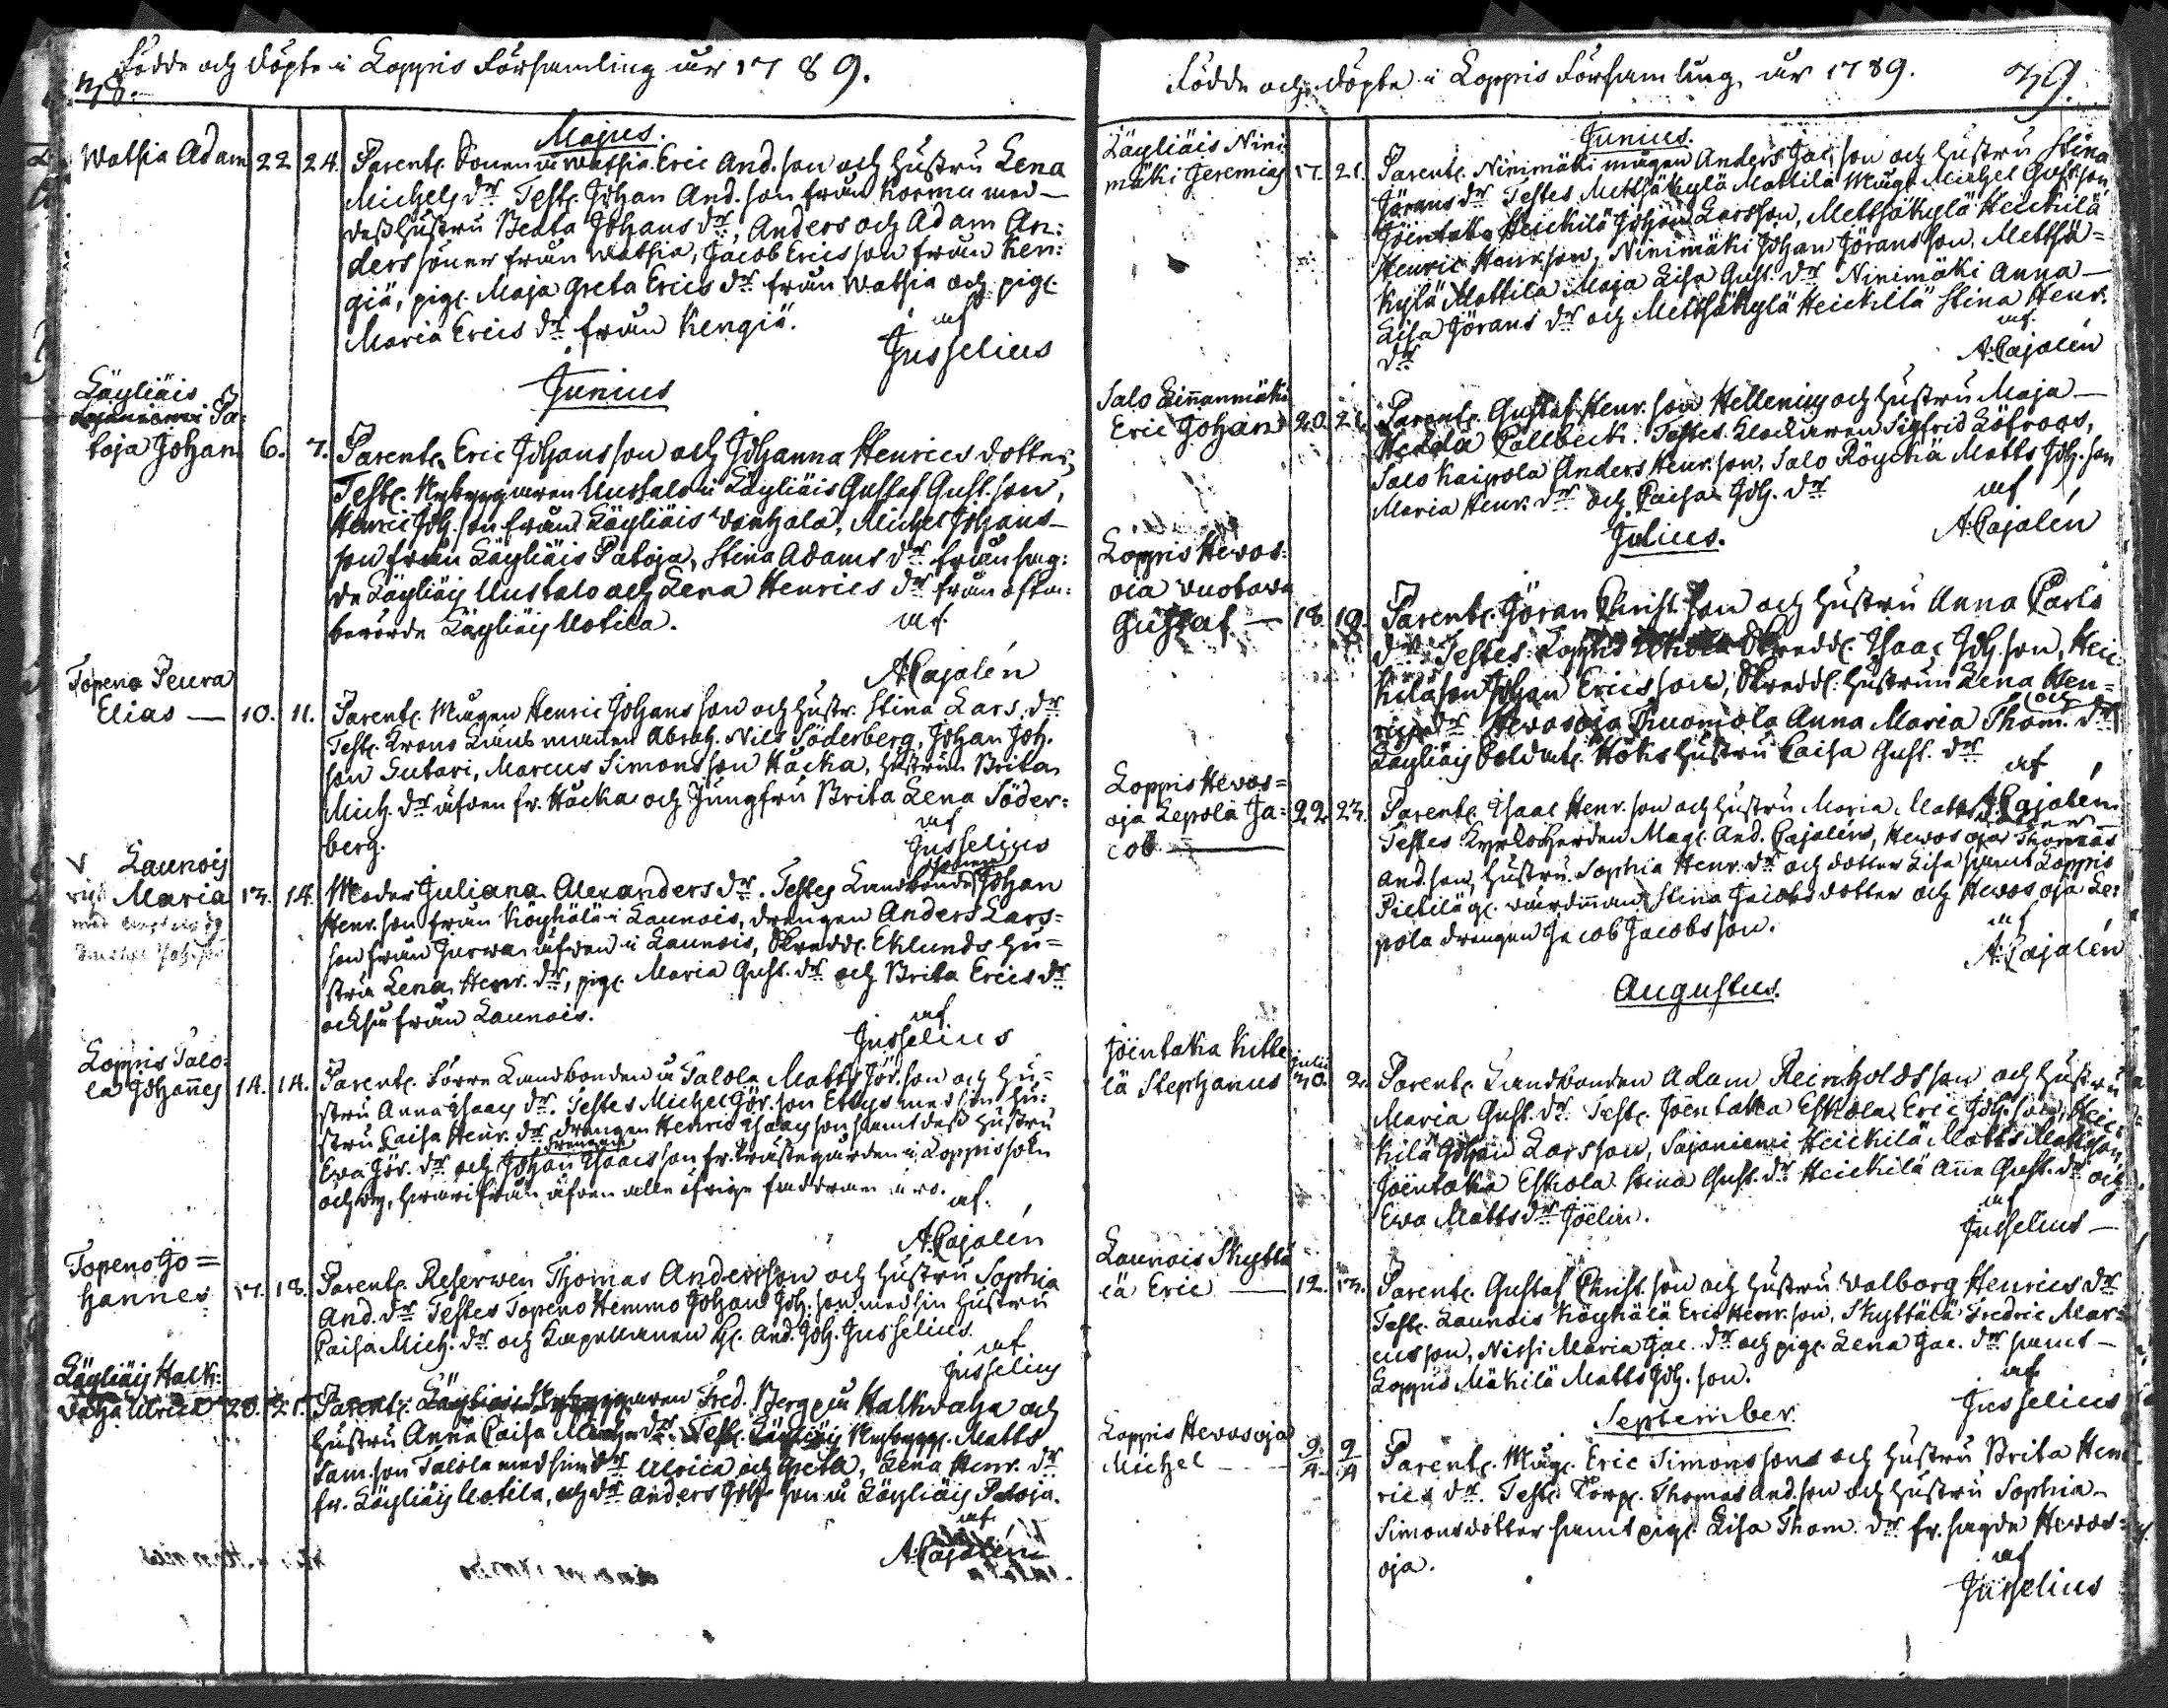 Födde och döpte i Loppis Församling år 1789.
38.
Majus.
Wathia Adam 22 24. Parent. Sonen å Wathia Eric And.son och hustru Lena
Michels dr Test. Johan And.son från Kormu med
deß hustru Beata Johans dr, Anders och Adam An:
ders söner från Wathia, Jacob Ericsson från Ken:
giä, pig. Maja Greta Erics dr från Wathia och pig.
Maria Erics dr från Kengiä.
af
Jusselius
Junius
Läyliäis
Pa:
toja Johan 6. 7. Parent. Eric Johansson och Johanna Henrics dotter,
Test. Nybyggaren Uustalo i Läyliäis Gustaf Gust.son,
Henric Joh.son från Läyliäis Wanhala, Michel Johans
son från Läyliäis Patoja, Stina Adams dr från sag:
de Läyliäis Uustalo och Lena Henrics dr från ofta:
berörde Läyliäis Uotila.
af.
A:Cajalén
Topeno Peura
Elias — 10. 11. Parent. Mågen Henric Johansson och hustr. Stina Lars dr
Test. Krono Länsmannen Abrah. Nils Söderberg, Johan Joh.
son Sutari, Marcus Simonsson Hacka, hustrun Brita
Mich. dr äfven fr. Hacka och Jungfru Brita Lena Söder:
berg.
af
Jusselius
V Launois
Maria 13. 14. Moder Juliana Alexanders dr. Testes Landbonde sonen Johan
Henr.son från Köyhälä i Launois, drengen Anders Lars=
son från Jurwa äfven i Launois, Skredd. Eklunds hu=
stru Lena Henr. dr, pig. Maria Gust. dr och Brita Erics dr
också från Launois.
af
Jusselius
Loppis Talo:
la Johannes 14. 14. Parent. Förre Landbonden å Talola Matts Jör.son och hu=
stru Anna Isaacs dr. Testes Michel Jör.son med sin hu:
stru Caisa Henr. dr drengen Henric Isaacsson samt deß hustru
Ewa Jör. dr och drengen Johan Isaacsson fr. Prästegården i Loppis
äfven alle öfrige faddrar äro.
af.
A:Cajalén
Topeno Jo=
hannes 17. 18. Parent. Reserven Thomas Andersson och hustru Sophia
And. dr Testes Topeno Hemmo Johan Joh.son med sin hustru
Caisa Mich. dr och Kapellanen H. And. Joh. Jusselius.
af
Jusselius
Läyliäis Halk:
waha Ulrica 20. 21. Parent. Fred. Berg å Halkivaha och
hustru Anna Caisa dr. Test. Läyliäis Nybygg. Matts
Sam.son Talola med sin dr Ulrica och Greta, Lena Henr. dr
fr. Läyliäis Uotila, och dr Anders Joh.son å Läyliäis Patoja.
af.
A:Cajalén
Födde och döpte i Loppis Församling år 1789.
39.
Junius.
Läyliäis Nini:
mäki Jeremias 17. 21. Parent. Ninimäki mågen Anders Jac.son och hustru Stina
Jörans dr Testes Mettsäkylä Mattila Måg. Michel Gust.son
Jöentaka Heickilä Johan Larsson, Mettsäkylä Heickilä
Henric Henr.son, Ninimäki Johan Jöransson, Mettsä=
kylä Mattila Maja Lisa Gust. dr Ninimäki Anna
Lisa Jörans dr och Mettsäkylä Heickilä Stina Henr.
dr
af.
A:Cajalén
Salo Linnanmäki
Eric Johan 20. 21. Parent. Gustaf Henr.son Hellenius och hustru Maja
Hedda Tallbeck. Testes Klockaren Sigfrid Löfroos,
Salo Kaipola Anders Henr.son, Salo Röyckä Matts Joh.son
Maria Henr. dr och Caisa Joh. dr
af
A:Cajalén
Julius.
Loppis Hewos:
oia Wuotawa
Gustaf — 18. 19. Parent. Jöran Christ.son och hustru Anna Carls
dr Testes Skredd. Isaac Joh.son, Heic:
kilä son Johan Ericsson, Skredd. hustrun Lena Hen=
rics dr Hewosoja Tuomola Anna Maria Thom. dr och
Läyliäis Soldat. Höks hustru Caisa Gust. dr
af
A:Cajalén
Loppis Hewos=
oja Lepola Ja=
cob — 22. 23. Parent. Isaac Henr.son och hustru Maria Matts dotter
Testes Kyrkoherden Mag. And. Cajalens, Hewosoja Thomas
And.son, hustru Sophia Henr. dr och dotter Lisa samt Loppis
Pietilä Stina Jacobs dotter och Hewosoja Le:
pola drengen Jacob Jacobsson.
af
A:Cajalén
Augustus.
Jöentaka Kitti
lä Stephanus Julii 30. 2. Parent. Landbonden Adam Reinholdsson och hustru
Maria Gust. dr Test. Jöentaka Eskola Eric Joh.son, Heic:
kilä Johan Larsson, Sajaniemi Heickilä Matts Mattsson,
Jöentaka Eskola Stina Gust. dr Heickilä Anna Gust. dr och
Ewa Matts dr Jöelin.
af
Jusselius
Launois Skyttä
lä Eric — 12. 13. Parent. Gustaf Christ.son och hustru Walborg Henrics dr
Test. Launois Köyhälä Eric Henr.son, Skyttälä Fredric Mar=
cusson, Nissi Maria Jac. dr och pig. Lena Jac. dr samt
Loppis Mäkilä Matts Joh.son.
af
Jusselius
September.
Loppis Hewosoja
Michel 2. 4. 9 Parent. Måg. Eric Simonsson och hustru Brita Hen
rics dr. Test. Torp. Thomas And.son och hustru Sophia
Simonsdotter samt pig. Lisa Thom. dr fr. sagde Hewos=
oja.
af
Jusselius